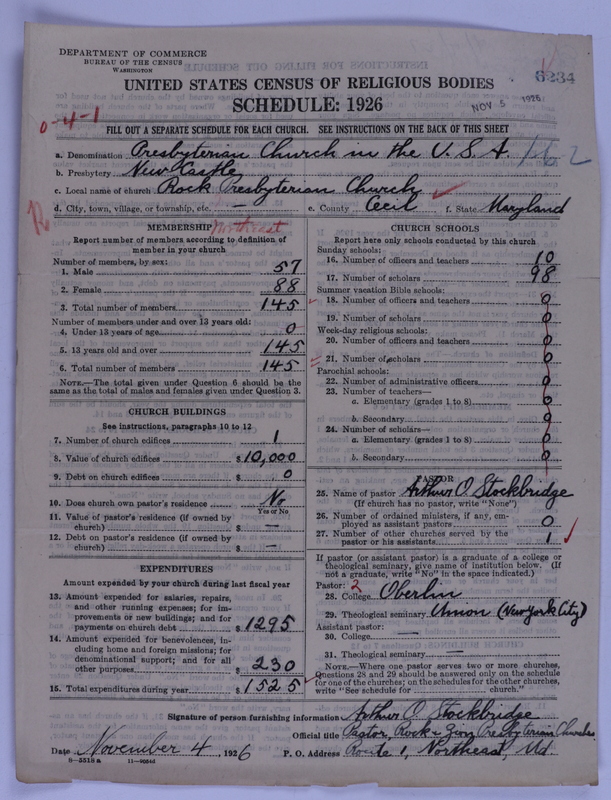 DEPARTMENT OF COMMERCE
BUREAU OF THE CENSUS
WASHINGTON
6234
UNITED STATES CENSUS OF RELIGIOUS BODIES
SCHEDULE: 1926
NOV 5 1926
0-4-1
FILL OUT A SEPARATE SCHEDULE FOR EACH CHURCH. SEE INSTRUCTIONS ON THE BACK OF THIS SHEET
a. Denomination Presbyterian Church in the U.S.A.
b. Presbytery New Castle
c. Local name of church Rock Presbyterian Church
d. City, town, village, or township, etc. — e. County Cecil f. State Maryland
Northeast
MEMBERSHIP
Report number of members according to definition of member in your church
Number of members, by sex:
1. Male 57
2. Female 88
3. Total number of members 145
Number of members under and over 13 years old:
4. Under 13 years of age 0
5. 13 years old and over 145
6. Total number of members 145
NOTE.—The total given under Question 6 should be the same as the total of males and females given under Question 3.
CHURCH BUILDINGS
See instructions, paragraphs 10 to 12
7. Number of church edifices 1
8. Value of church edifices $10,000
9. Debt on church edifices $ 0
10. Does church own pastor's residence No
Yes or No
11. Value of pastor's residence (if owned by church) $ —
12. Debt on pastor's residence (if owned by church) $ —
EXPENDITURES
Amount expended by your church during last fiscal year
13. Amount expended for salaries, repairs, and other running expenses; for improvements or new buildings; and for payments on church debt $ 1295
14. Amount expended for benevolences, including home and foreign missions; for denominational support; and for all other purposes $ 230
15. Total expenditures during year $ 1525
CHURCH SCHOOLS
Report here only schools conducted by this church
Sunday schools:
16. Number of officers and teachers 10
17. Number of scholars 98
Summer vacation Bible schools:
18. Number of officers and teachers 0
19. Number of scholars 0
Week-day religious schools:
20. Number of officers and teachers 0
21. Number of scholars 0
Parochial schools:
22. Number of administrative officers 0
23. Number of teachers—
a. Elementary (grades 1 to 8) 0
b. Secondary 0
24. Number of scholars—
a. Elementary (grades 1 to 8) 0
b. Secondary 0
PASTOR
25. Name of pastor Arthur O. Stockbridge
(If church has no pastor, write "None")
26. Number of ordained ministers, if any, employed as assistant pastors 0
27. Number of other churches served by the pastor or his assistants 1
If pastor (or assistant pastor) is a graduate of a college or theological seminary, give name of institution below. (If not a graduate, write "No" in the space indicated.)
Pastor: 2
28. College Oberlin
29. Theological seminary Union (New York City)
Assistant pastor:
30. College —
31. Theological seminary —
NOTE.—Where one pastor serves two or more churches, Questions 28 and 29 should be answered only on the schedule for one of the churches; on the schedules for the other churches, write "See schedule for ........ church."
Signature of person furnishing information Arthur O. Stockbridge
Official title Pastor, Rock & Zion Presbyterian Churches
Date November 4, 1926 P. O. Address Route 1, Northeast, Md.
8—5518a 11—9054d